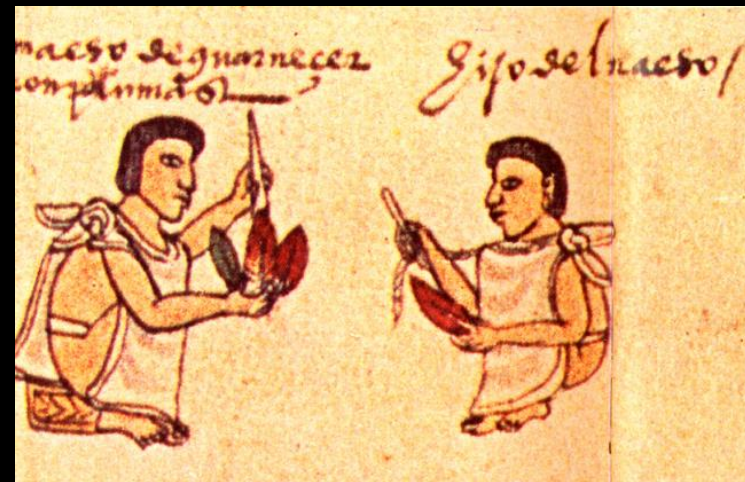 maeso de guarnecer
con plumas
hijo del maeso /